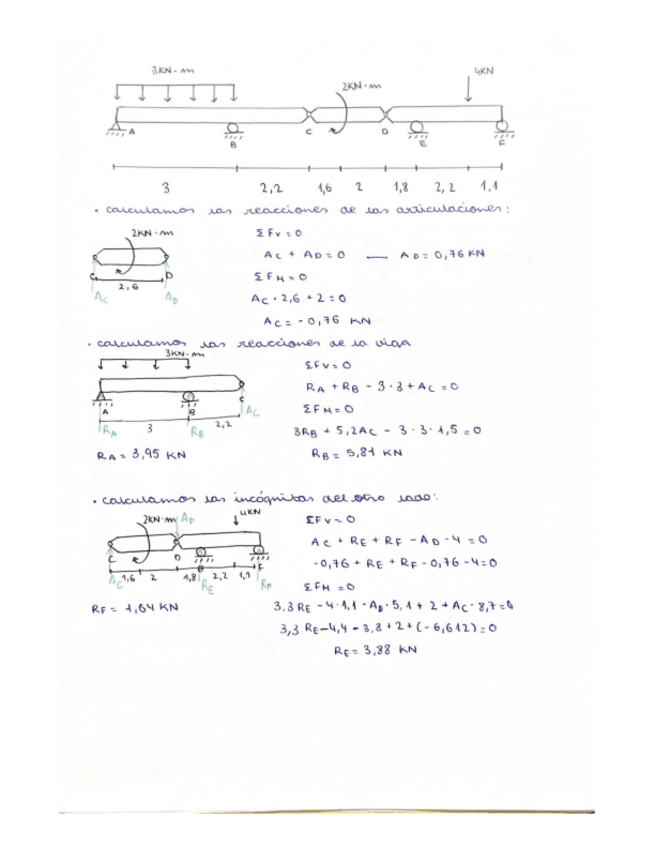 3KN·m
2KN·m
4KN
A B C D E F
3 2,2 1,6 2 1,8 2,2 1,1
· calculamos las reacciones de las articulaciones:
2KN·m
C D
2,6
Ac AD
ΣFv=0
Ac + AD = 0 — AD = 0,76 KN
ΣFM=0
Ac · 2,6 + 2 = 0
Ac = -0,76 KN
· calculamos las reacciones de la viga
3KN·m
A B C
RA 3 RB 2,2 Ac
RA = 3,95 KN
ΣFv=0
RA + RB - 3·3 + Ac = 0
ΣFM=0
3RB + 5,2Ac - 3·3·1,5 = 0
RB = 5,81 KN
· calculamos las incógnitas del otro lado:
2KN·m AD 4KN
C D E F
Ac 1,6 2 1,8 RE 2,2 1,1 RF
RF = 1,64 KN
ΣFv=0
Ac + RE + RF - AD - 4 = 0
-0,76 + RE + RF - 0,76 - 4 = 0
ΣFM=0
3,3 RE - 4·1,1 - AD·5,1 + 2 + Ac·8,7 = 0
3,3 RE - 4,4 - 3,8 + 2 + (-6,612) = 0
RE = 3,88 KN